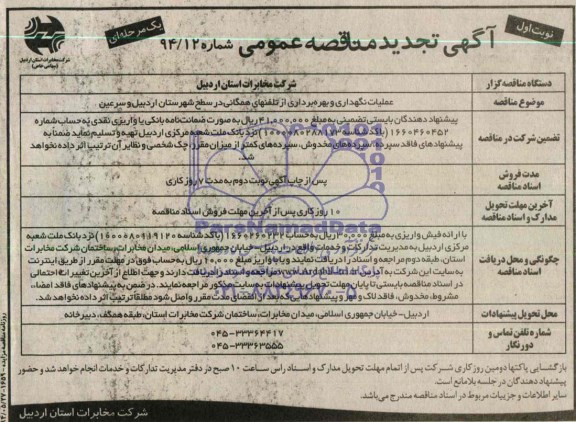 نوبت اول
آگهی تجدید مناقصه عمومی شماره ۹۴/۱۲
یک مرحله‌ای
شرکت مخابرات استان اردبیل
(سهامی خاص)
دستگاه مناقصه گزار
شرکت مخابرات استان اردبیل
موضوع مناقصه
عملیات نگهداری و بهره برداری از تلفنهای همگانی در سطح شهرستان اردبیل و سرعین
تضمین شرکت در مناقصه
پیشنهاد دهندگان بایستی تضمینی به مبلغ ۴۱,۰۰۰,۰۰۰ ریال به صورت ضمانت‌نامه بانکی یا واریزی نقدی به حساب شماره
۱۶۶۰۴۶۰۴۵۲ (باکد شناسه نزد بانک ملت شعبه مرکزی اردبیل تهیه و تسلیم نماید ضمناً به
پیشنهادهای فاقد سپرده، سپرده‌های مخدوش، سپرده‌های کمتر از میزان مقرر، چک شخصی و نظایر آن ترتیب اثر داده نخواهد
شد.
مدت فروش
اسناد مناقصه
پس از چاپ آگهی نوبت دوم به مدت ۷ روز کاری
آخرین مهلت تحویل
مدارک و اسناد مناقصه
۱۰ روز کاری پس از آخرین مهلت فروش اسناد مناقصه
چگونگی و محل دریافت
اسناد مناقصه
با ارائه فیش واریزی به مبلغ ریال به حساب نزد بانک ملت شعبه
مرکزی اردبیل به مدیریت تدارکات و خدمات واقع در اردبیل - خیابان جمهوری اسلامی، میدان مخابرات، ساختمان شرکت مخابرات
استان، طبقه دوم مراجعه و اسناد را دریافت نمایند و یا با واریز مبلغ ریال به حساب فوق در مهلت مقرر از طریق اینترنت
به سایت این شرکت به آدرس مراجعه و اسناد را دریافت دارند و جهت اطلاع از آخرین تغییرات احتمالی
در اسناد مناقصه بایستی تا پایان مهلت تحویل پیشنهادات به سایت مذکور مراجعه نمایند. در ضمن به پیشنهادهای فاقد امضاء،
مشروط، مخدوش، فاقد لاک و مهر و پیشنهادهایی که بعد از انقضای مدت مقرر واصل شود مطلقاً ترتیب اثر داده نخواهد شد.
محل تحویل پیشنهادات
اردبیل - خیابان جمهوری اسلامی، میدان مخابرات، ساختمان شرکت مخابرات استان، طبقه همکف، دبیرخانه
شماره تلفن تماس و
دورنگار
۰۴۵-۳۳۳۶۴۴۱۷
۰۴۵-۳۳۳۶۳۵۵۵
بازگشایی پاکتها دومین روز کاری شرکت پس از اتمام مهلت تحویل مدارک و اسناد راس ساعت ۱۰ صبح در دفتر مدیریت تدارکات و خدمات انجام خواهد شد و حضور
پیشنهاد دهندگان در جلسه بلامانع است.
سایر اطلاعات و جزییات مربوط در اسناد مناقصه مندرج می‌باشد.
شرکت مخابرات استان اردبیل
ParsNamadData